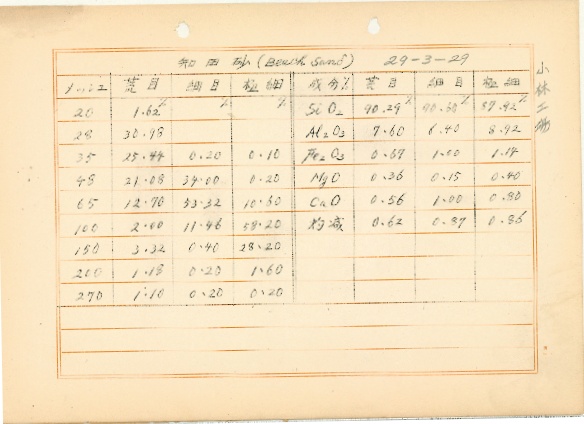 和田砂 (Beach Sand) 29-3-29
メッシュ 荒目 細目 極細 成分% 荒目 細目 極細
20 1.62% % % SiO2 90.29% 90.35% 87.92%
28 30.98 Al2O3 7.60 6.40 8.92
35 25.44 0.20 0.10 Fe2O3 0.67 1.00 1.14
48 21.08 34.00 0.20 MgO 0.36 0.15 0.40
65 12.70 53.32 10.60 CaO 0.56 1.00 0.80
100 2.00 11.46 58.20 灼減 0.62 0.87 0.86
150 3.32 0.40 28.20
200 1.18 0.20 1.60
270 1.10 0.20 0.20
小林工務